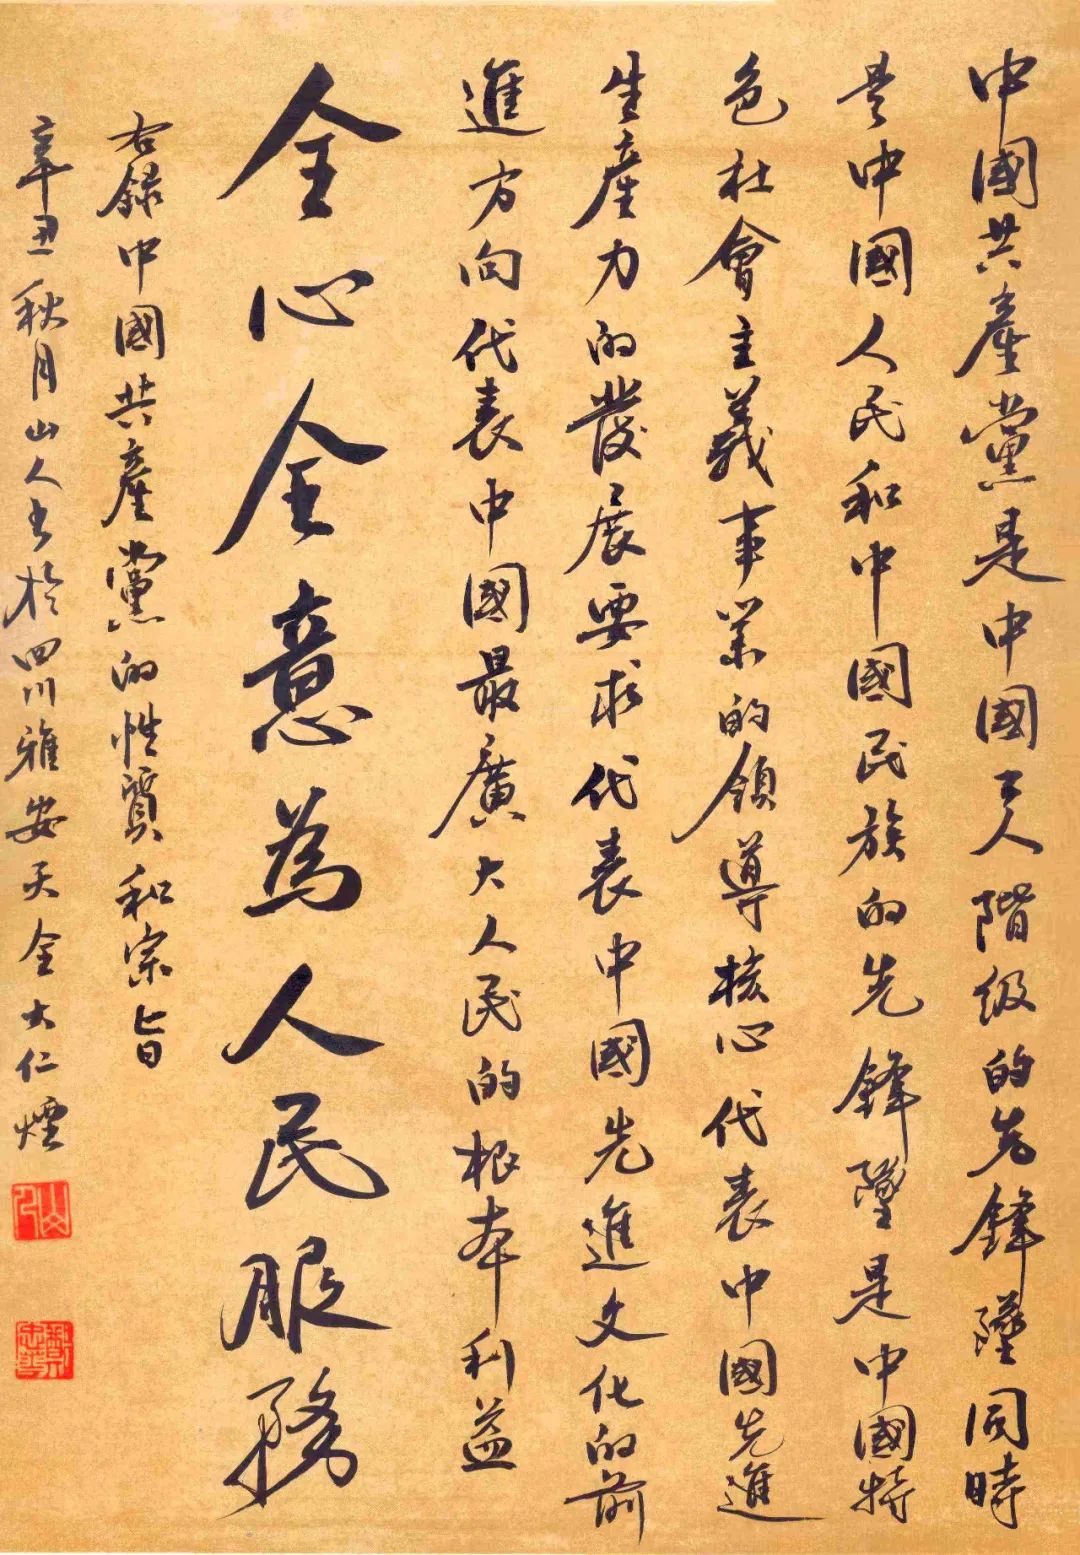 中國共產黨是中國工人階級的先鋒隊同時
是中國人民和中國民族的先鋒隊是中國特
色社會主義事業的領導核心代表中國先進
生產力的發展要求代表中國先進文化的前
進方向代表中國最廣大人民的根本利益
全心全意為人民服務
右錄中國共產黨的性質和宗旨
辛丑秋月山人书於四川雅安天全大仁煙